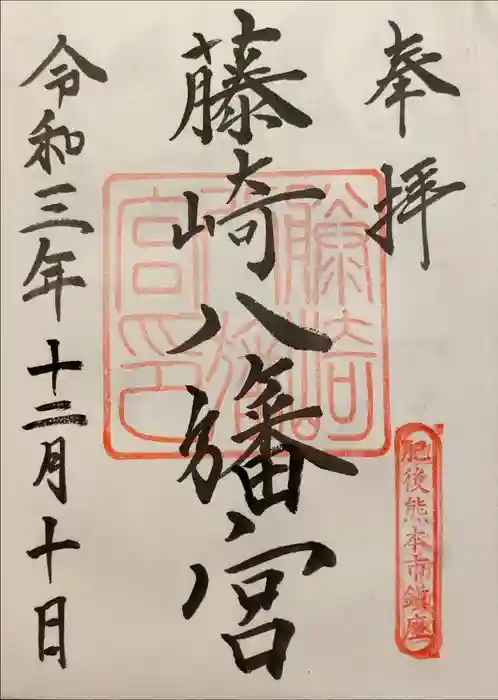 奉拝
藤崎八旛宮
令和三年十二月十日
藤崎八旛宮印
肥後熊本市鎮座